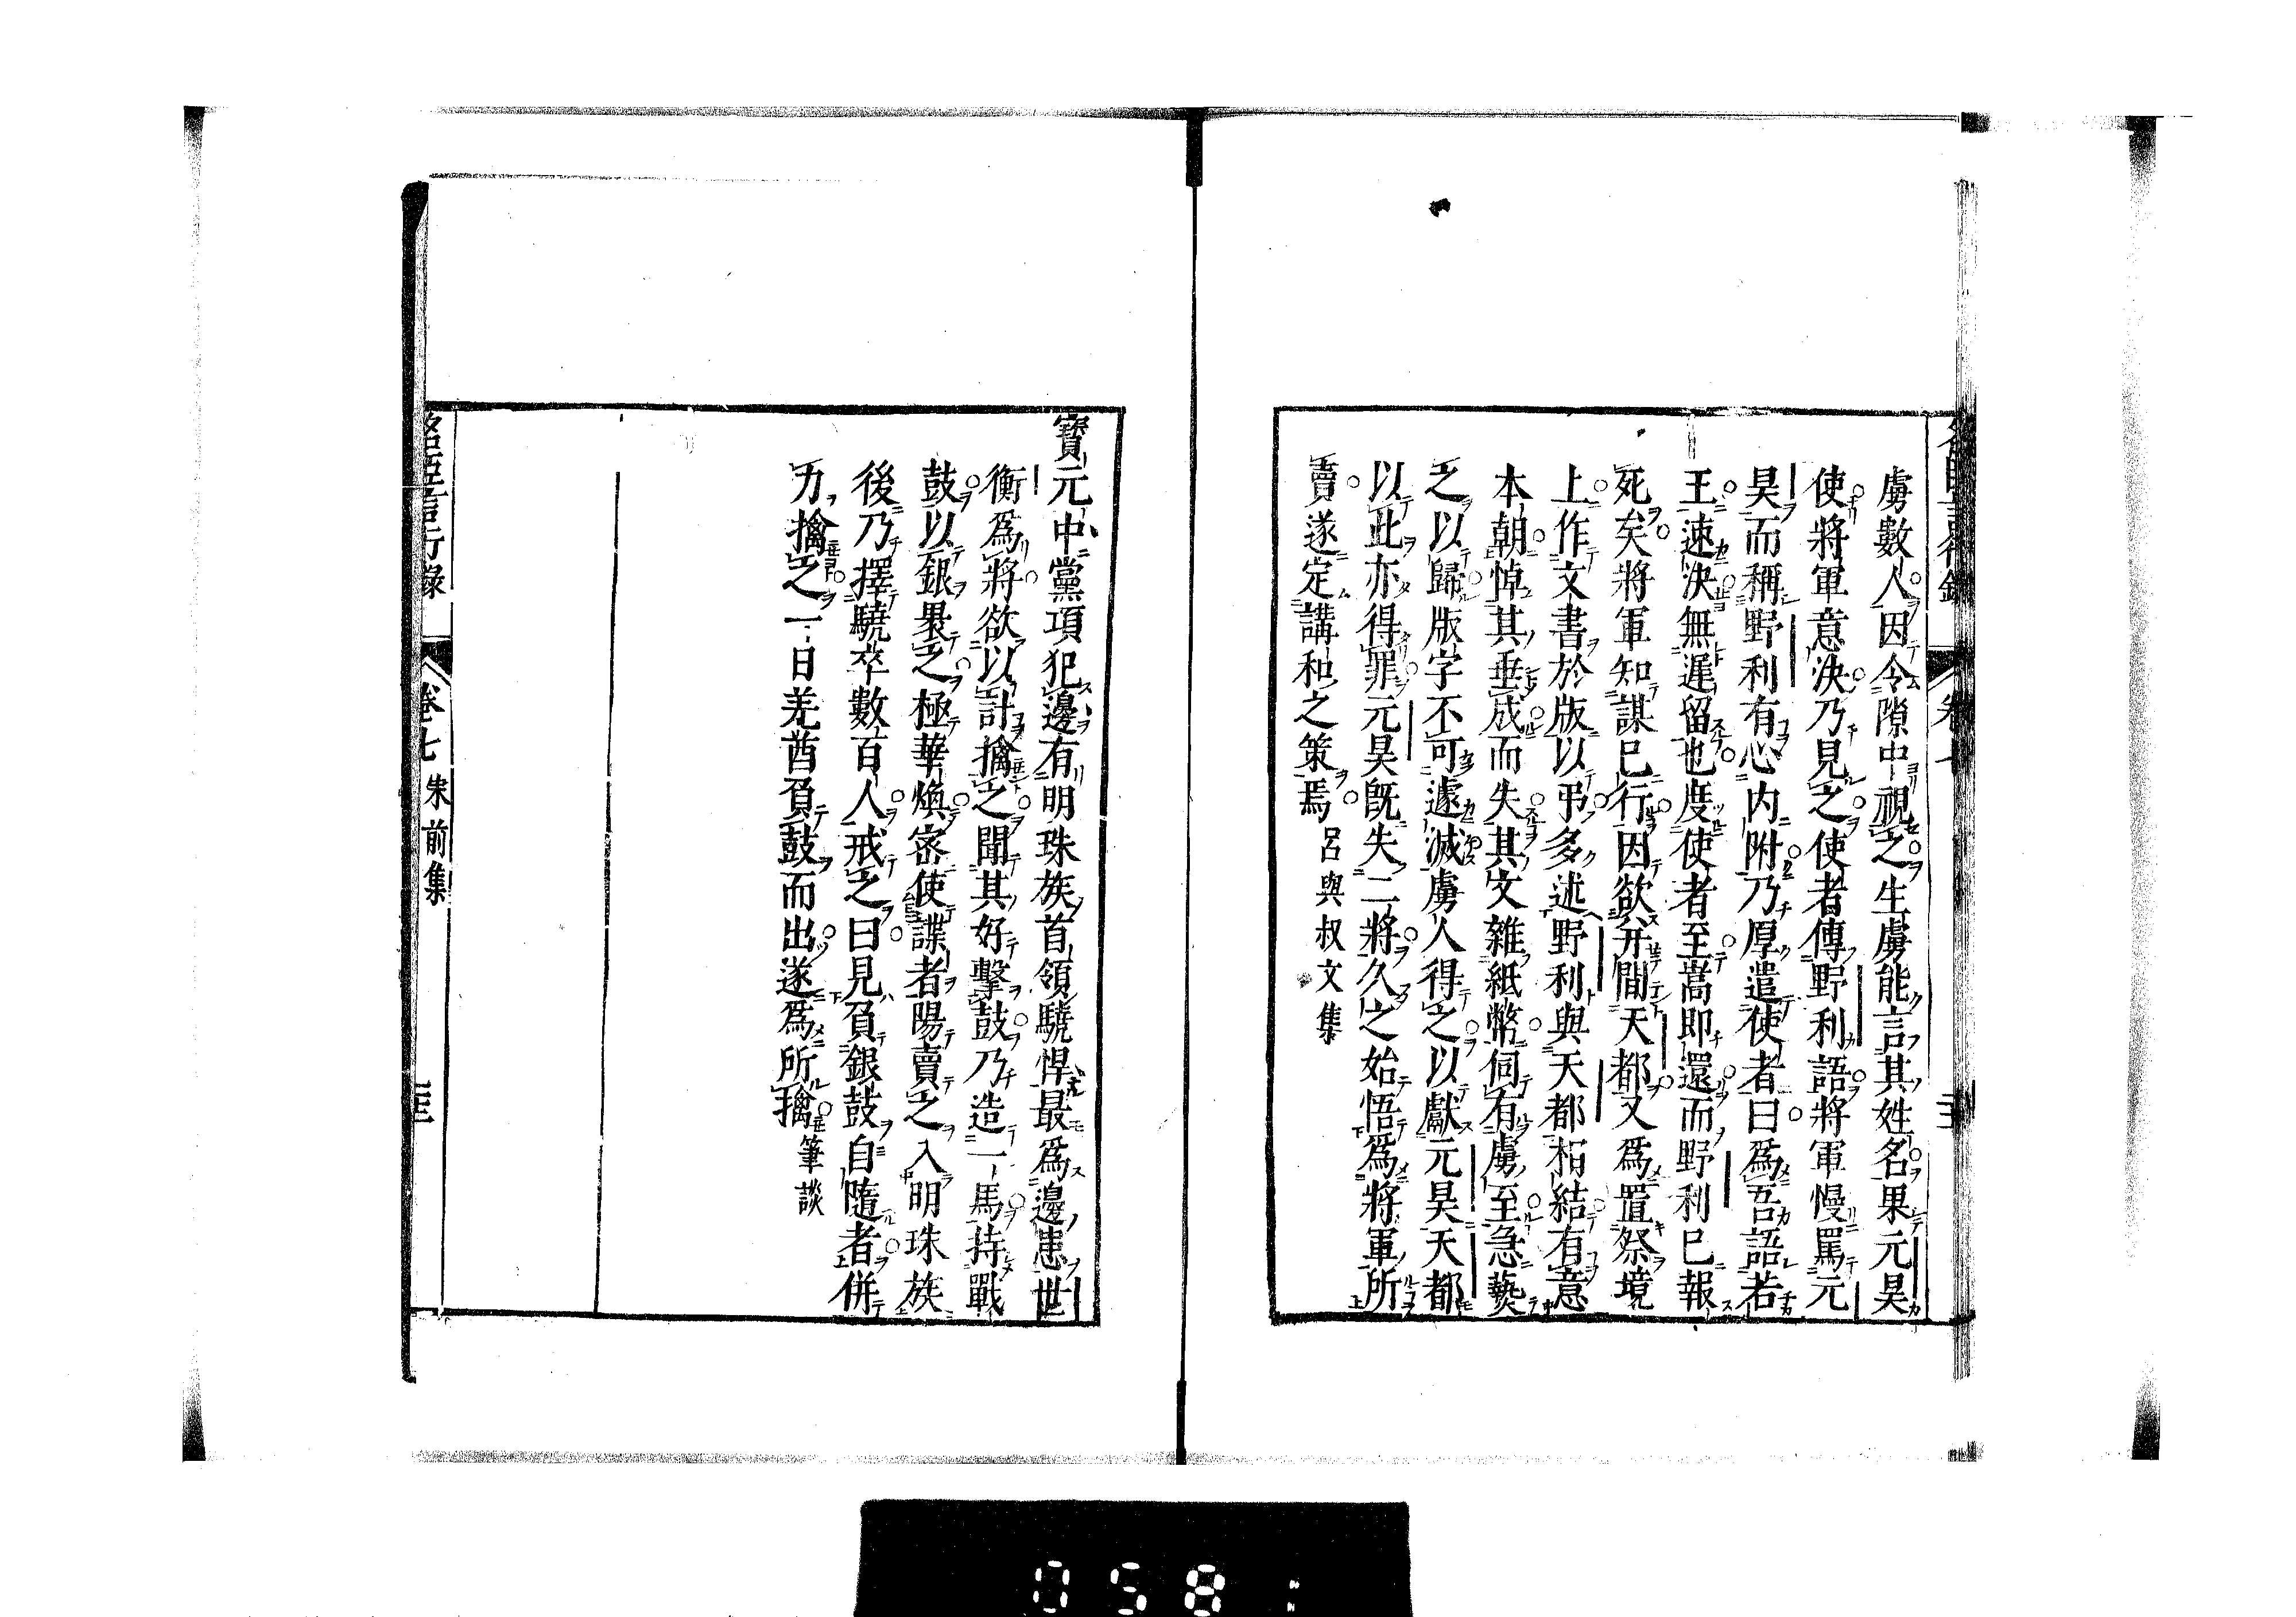 虜數人因令隙中視之生虜能言其姓名果元昊
使將軍意決乃見之使者傳野利語將軍慢罵元
昊而稱野利有心内附乃厚遣使者曰爲吾語若
王速決無遲留也度使者至嵩即還而野利已報
死矣將軍知謀已行因欲并間天都又爲置祭境
上作文書於版以弔多述野利與天都相結有意
本朝悼其垂成而失其文雜紙幣伺有虜至急爇
之以歸版字不可遽滅虜人得之以獻元昊天都
以此亦得罪元昊既失二將久之始悟爲將軍所
賣遂定講和之策焉 呂與叔文集
寶元中黨項犯邊有明珠族首領驍悍最爲邊患世
衡爲將欲以計擒之聞其好擊鼓乃造一馬持戰
鼓以銀裹之極華煥密使諜者陽賣之入明珠族
後乃擇驍卒數百人戒之曰見負銀鼓自隨者併
力擒之一日羌酋負鼓而出遂爲所擒 筆談
卷七 朱前集
0581